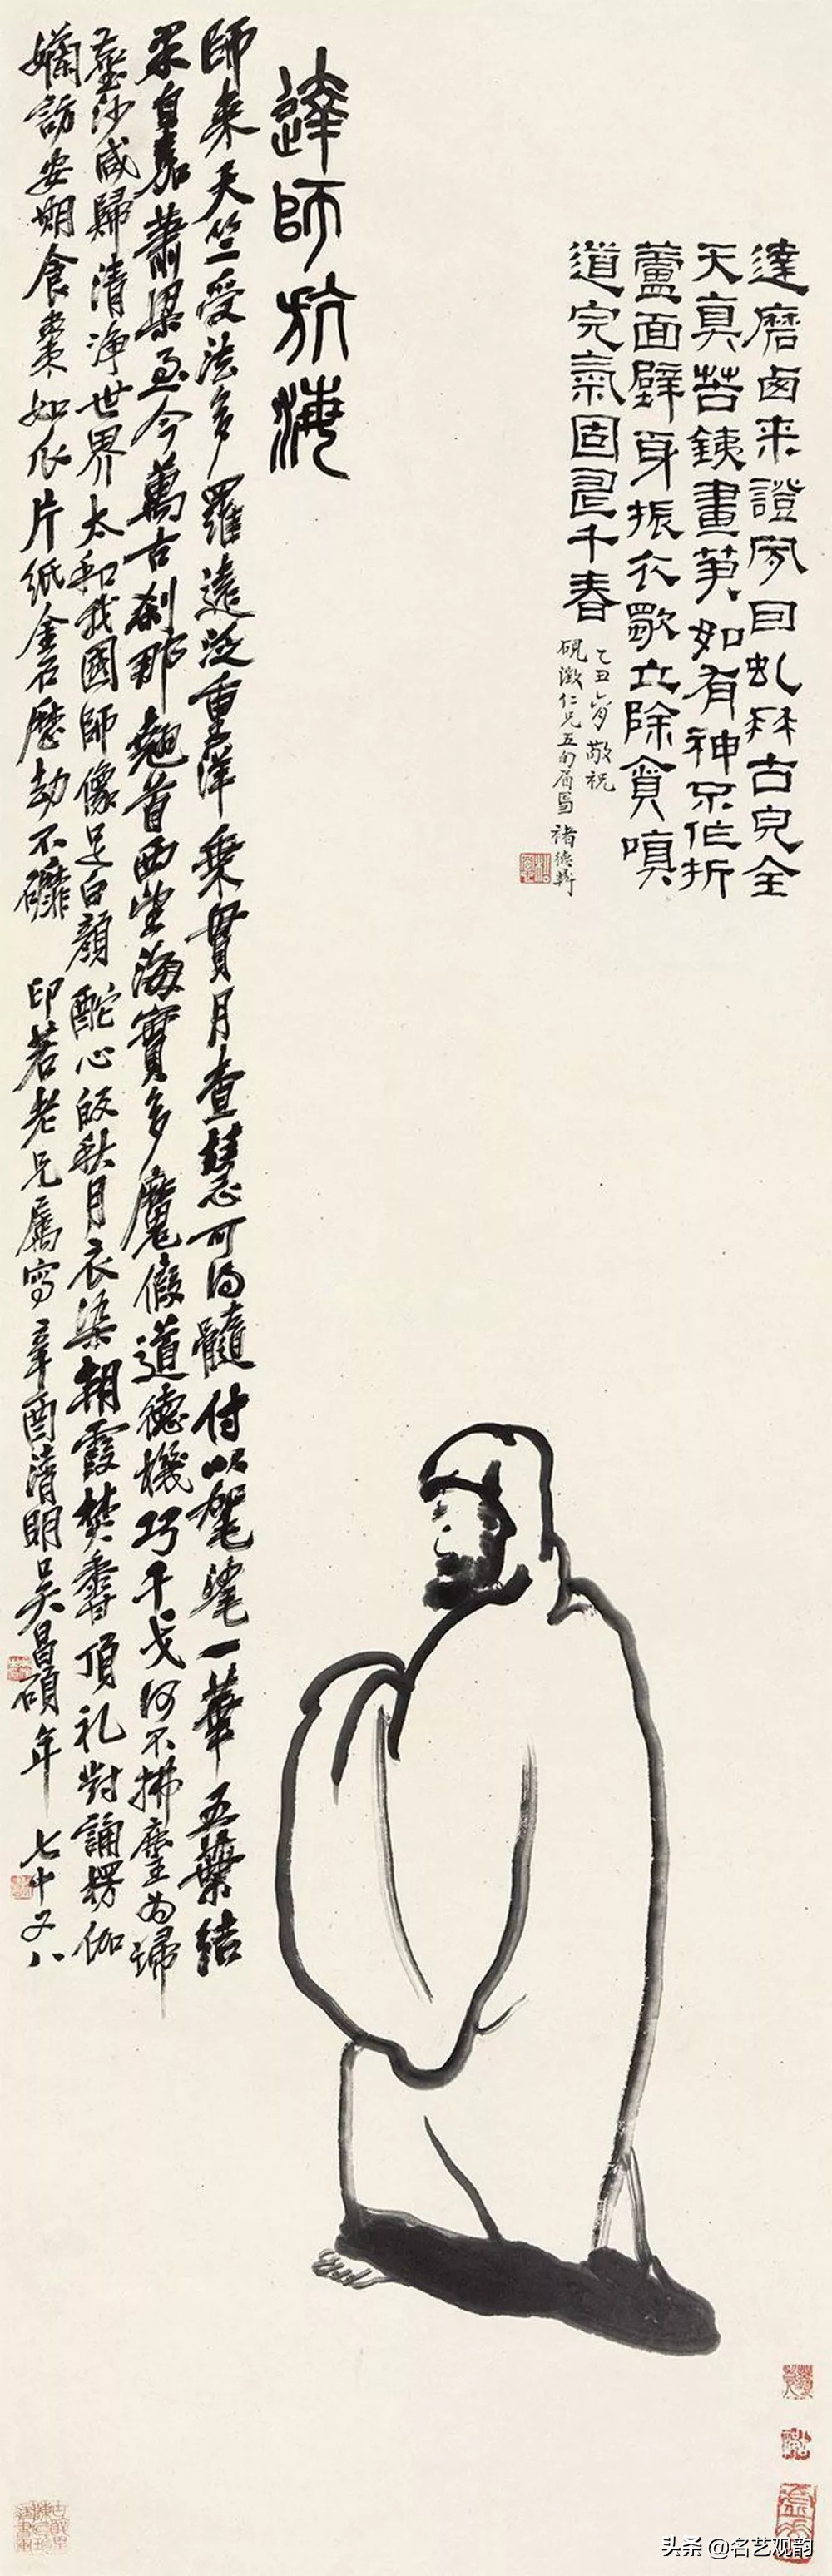 達磨西来證夙因虬秝古皃全
天真苦鐵畫笋如有神只作折
蘆面壁身振衣歌立除貪嗔
道完氣固是千春
乙丑 敬祝
硯澂仁兄五旬 褚德彝
達師航海
師来天竺受法多羅遠泛重洋乘貫月查慧可得髓付以袈裟一華五葉結
果自嘉蕭梁至今萬古刹那翹首西望海實多魔假道德機巧干戈何不拂塵為掃
塵沙咸歸清淨世界太和我國師像足白顏酡心皎秋月衣染朝霞焚香頂礼對誦楞伽
嬾訪安期食棗如瓜片紙金石歷劫不礳 印若老兄屬寫辛酉清明吳昌碩年七十又八
头条 @名艺观韵